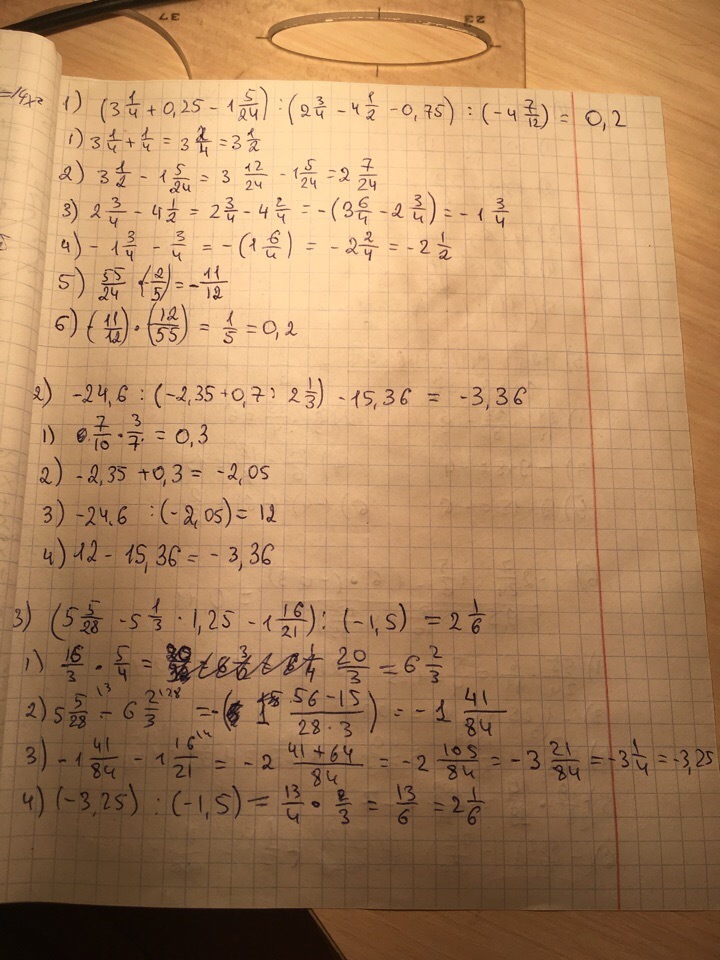 37 23
=14x²
1) (3 1/4 + 0,25 - 1 5/24) : (2 3/4 - 4 1/2 - 0,75) : (-4 7/12) = 0,2
1) 3 1/4 + 1/4 = 3 2/4 = 3 1/2
2) 3 1/2 - 1 5/24 = 3 12/24 - 1 5/24 = 2 7/24
3) 2 3/4 - 4 1/2 = 2 3/4 - 4 2/4 = -(3 6/4 - 2 3/4) = -1 3/4
4) -1 3/4 - 3/4 = -(1 6/4) = -2 2/4 = -2 1/2
5) 55/24 · (-2/5) = -11/12
6) (-11/12) · (12/55) = 1/5 = 0,2
2) -24,6 : (-2,35 + 0,7 : 2 1/3) - 15,36 = -3,36
1) 7/10 · 3/7 = 0,3
2) -2,35 + 0,3 = -2,05
3) -24.6 : (-2,05) = 12
4) 12 - 15,36 = -3,36
3) (5 5/28 - 5 1/3 · 1,25 - 1 16/21) : (-1,5) = 2 1/6
1) 16/3 · 5/4 = 20/3 = 6 2/3
2) 5 5/28 - 6 2/3 = -(1 56-15/28·3) = -1 41/84
3) -1 41/84 - 1 16/21 = -2 41+64/84 = -2 105/84 = -3 21/84 = -3 1/4 = -3,25
4) (-3,25) : (-1,5) = 13/4 · 2/3 = 13/6 = 2 1/6